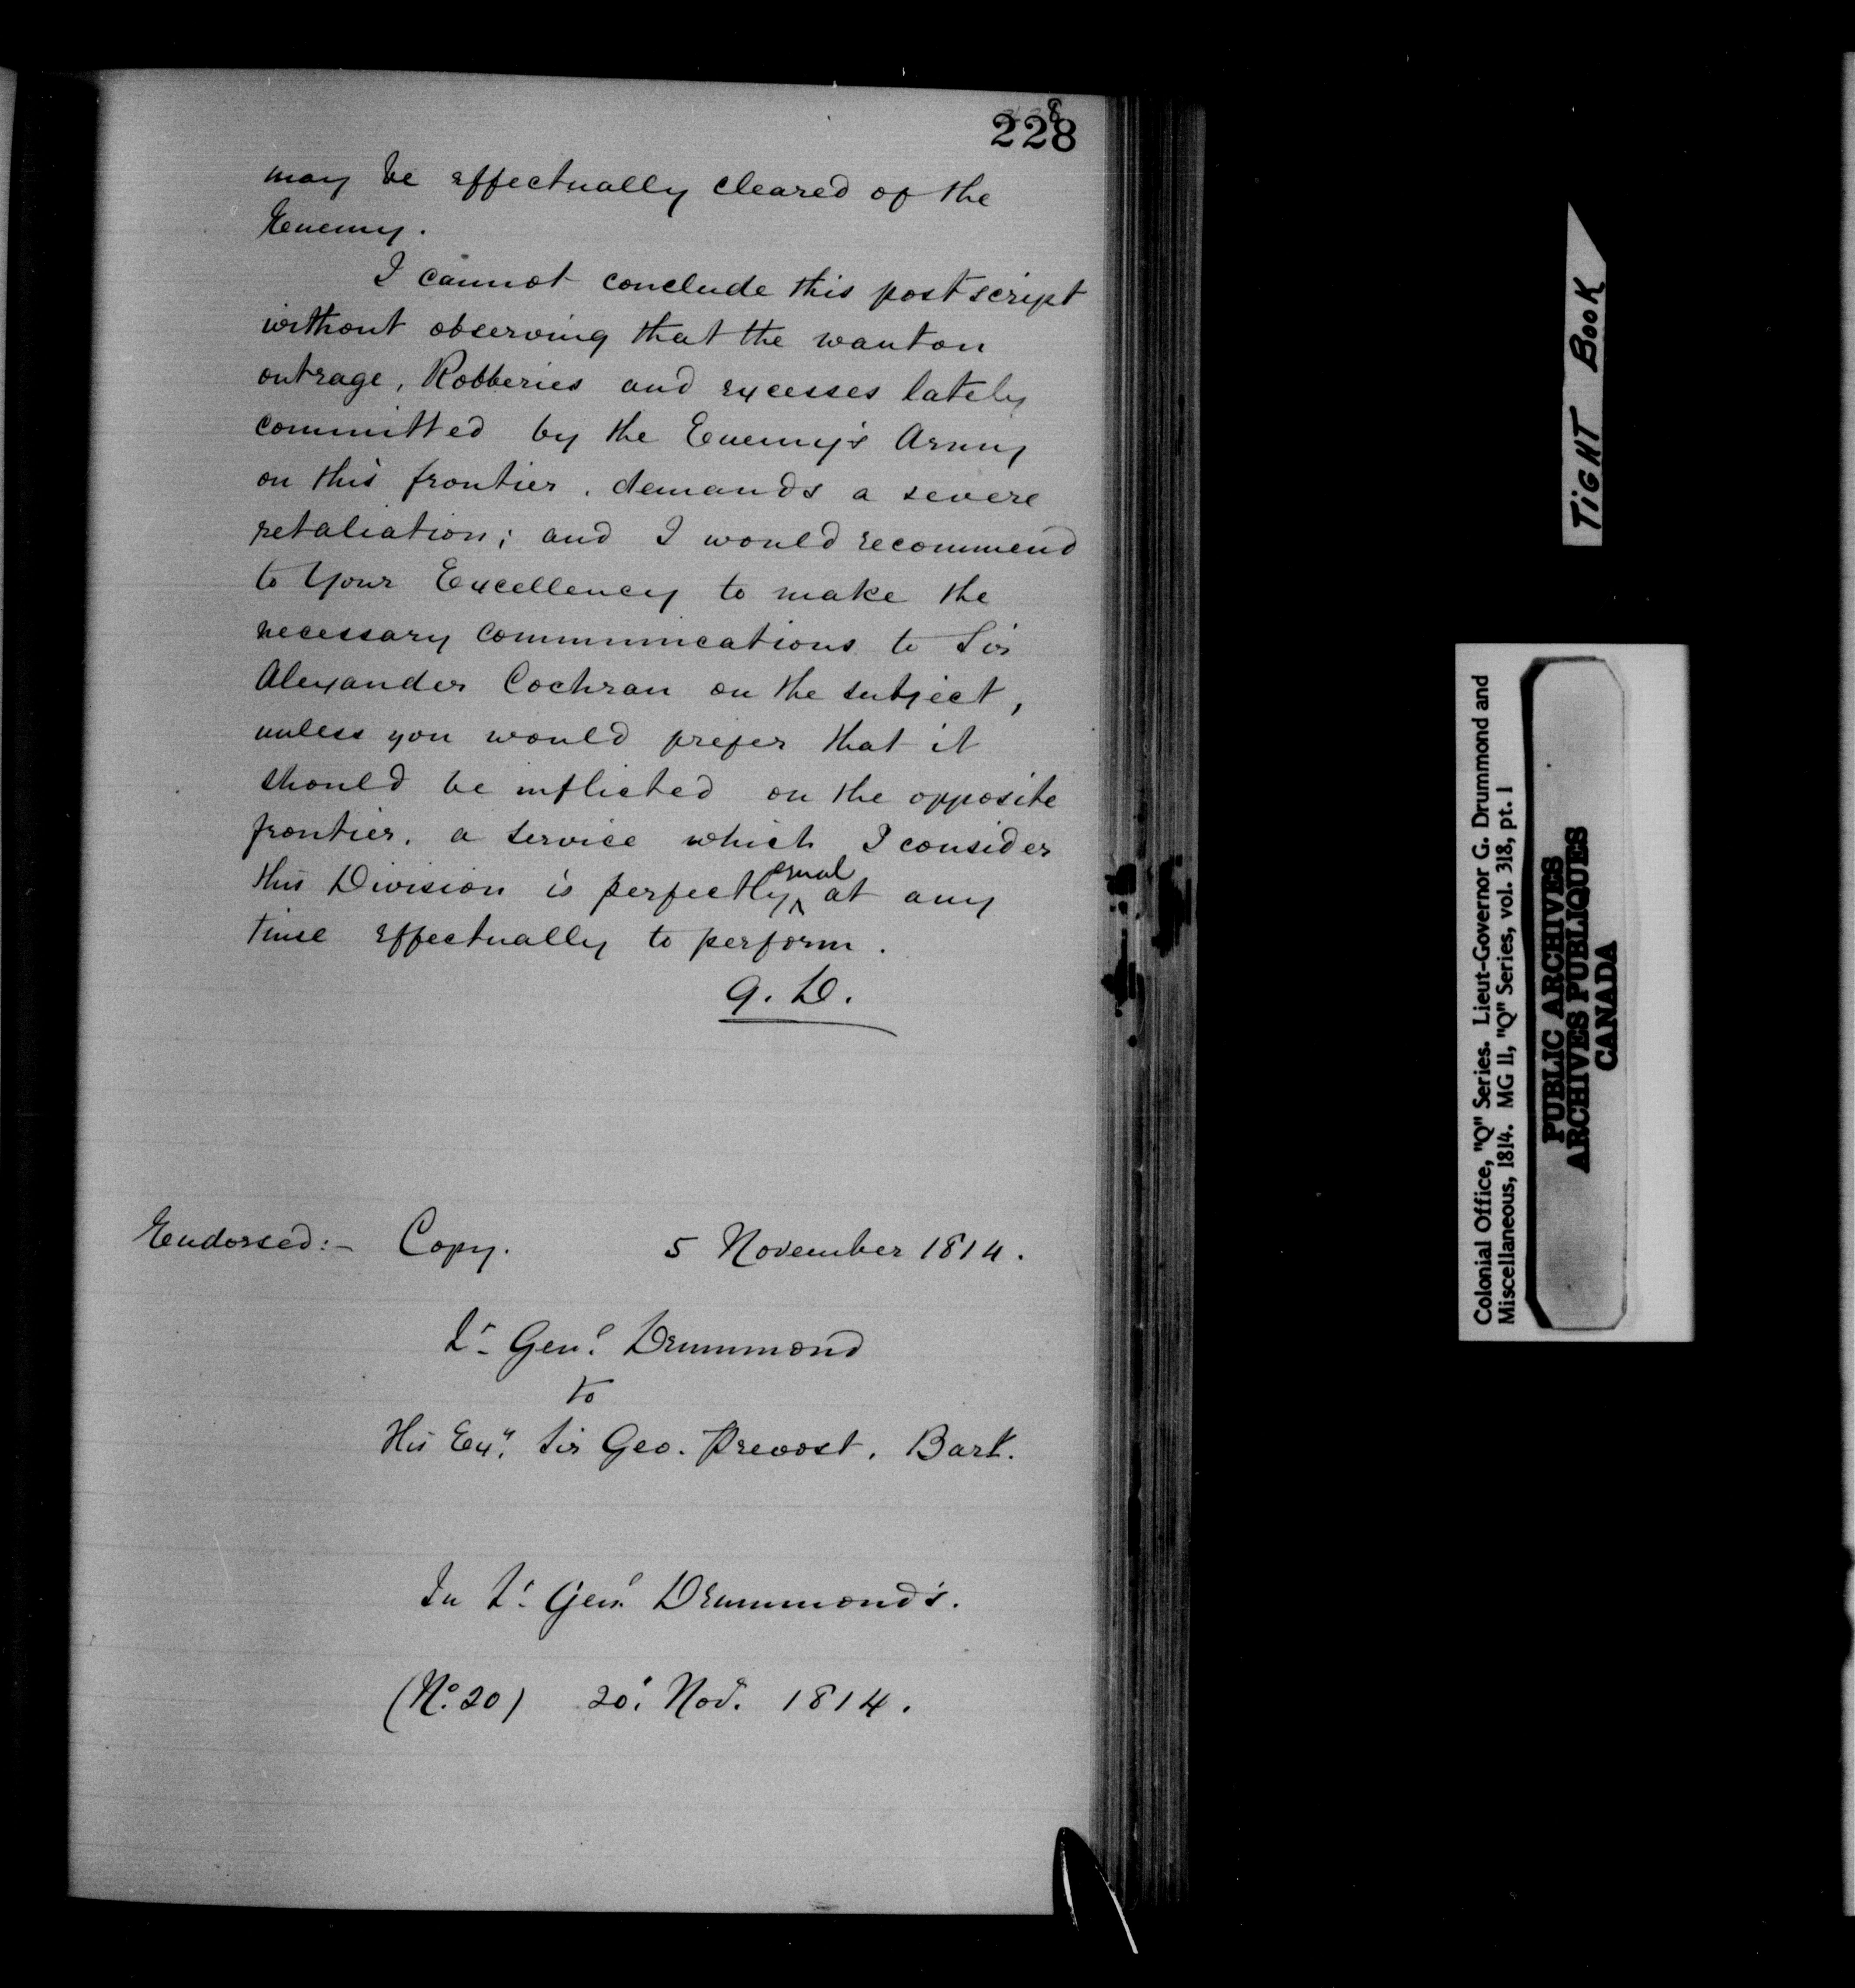 228
may be effectually cleared of the
Enemy.
I cannot conclude this postscript
without observing that the wanton
outrage, Robberies and excesses lately
committed by the Enemy's Army
on this frontier, demands a severe
retaliation; and I would recommend
to Your Excellency to make the
necessary communications to Sir
Alexander Cochran on the subject,
unless you would prefer that it
should be inflicted on the opposite
frontier, a service which I consider
this Division is perfectly equal at any
time effectually to perform.
G. D.
Endorsed:- Copy. 5 November 1814.
Lt Genl Drummond
to
His Exy. Sir Geo. Prevost, Bart.
In Lt Genl Drummond's.
(No. 20) 20. Nov. 1814.
TIGHT BOOK
Colonial Office, "Q" Series. Lieut-Governor G. Drummond and
Miscellaneous, 1814. MG 11, "Q" Series, vol. 318, pt. 1
PUBLIC ARCHIVES
ARCHIVES PUBLIQUES
CANADA